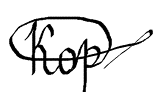 Кор